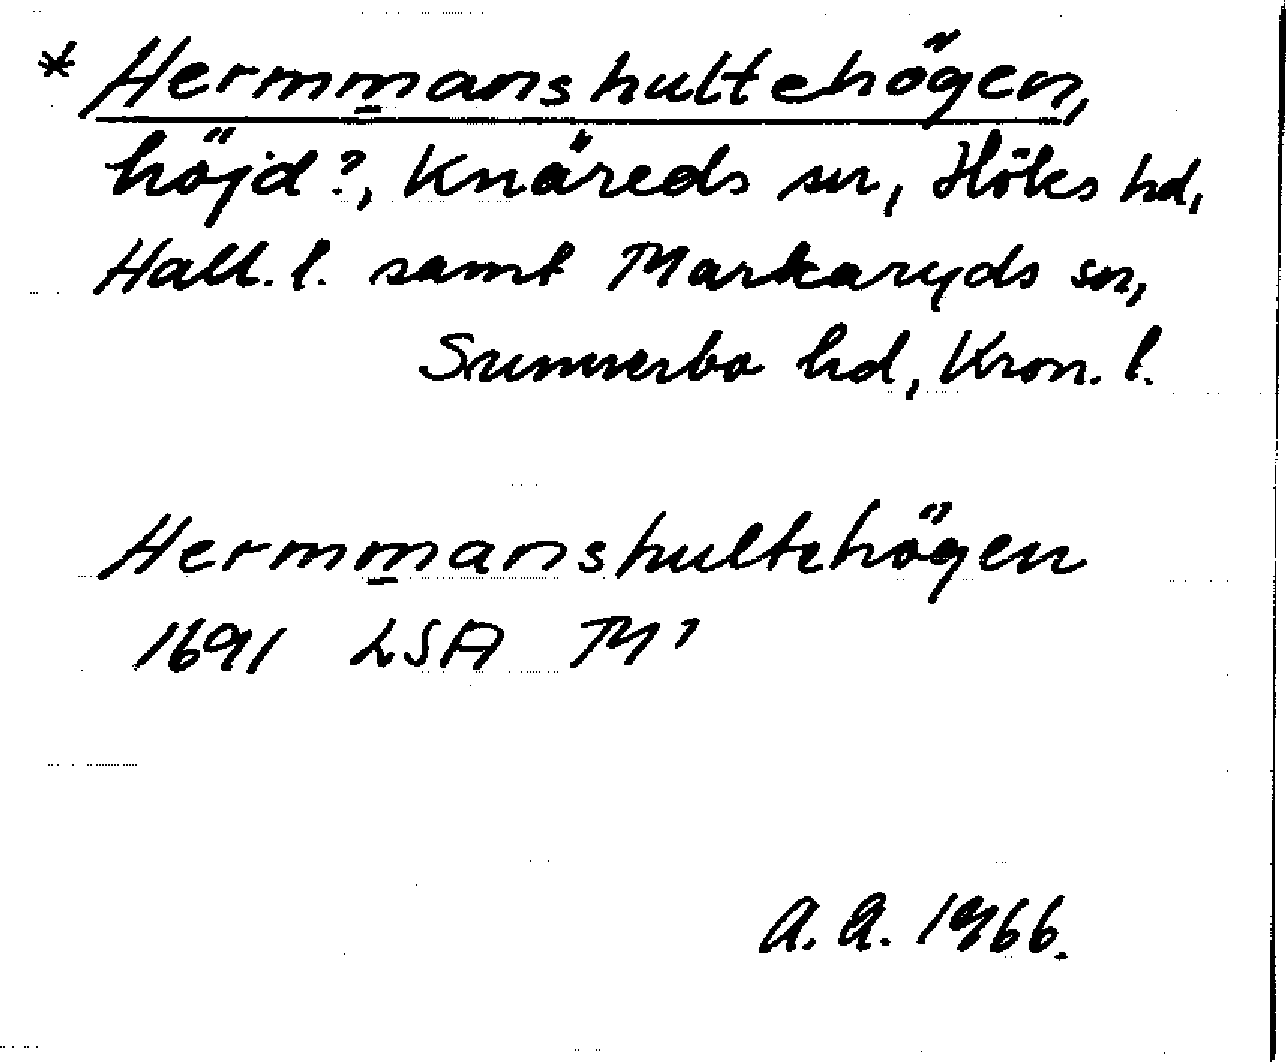 * Hermmanshultehögen,
höjd?, Knäreds sn, Höks hd,
Hall. l. samt Markaryds sn,
Sunnerbo hd, Kron. l.
Hermmanshultehögen
1691 LSA M¹
A. A. 1966.